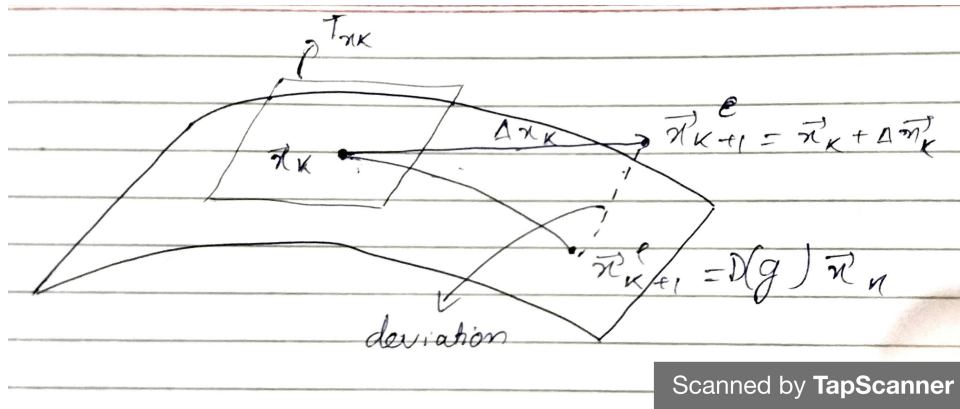 T_xK
Δx_K
x⃗^e_K+1 = x⃗_K + Δx⃗_K
x⃗_K
x⃗^e_K+1 = D(g) x⃗_K
deviation
Scanned by TapScanner